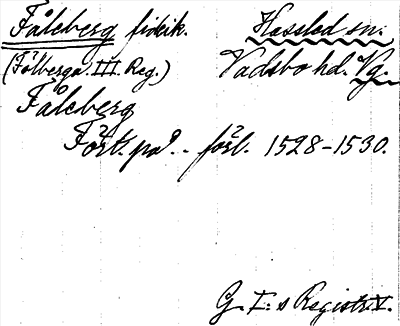 Fåleberg fideik. Hassled sn.
(Fölberga. III. Reg.) Vadsbo hd. Vg.
Fåleberg
Fört. på. - förl. 1528-1530.
G. I:s Registr. V.